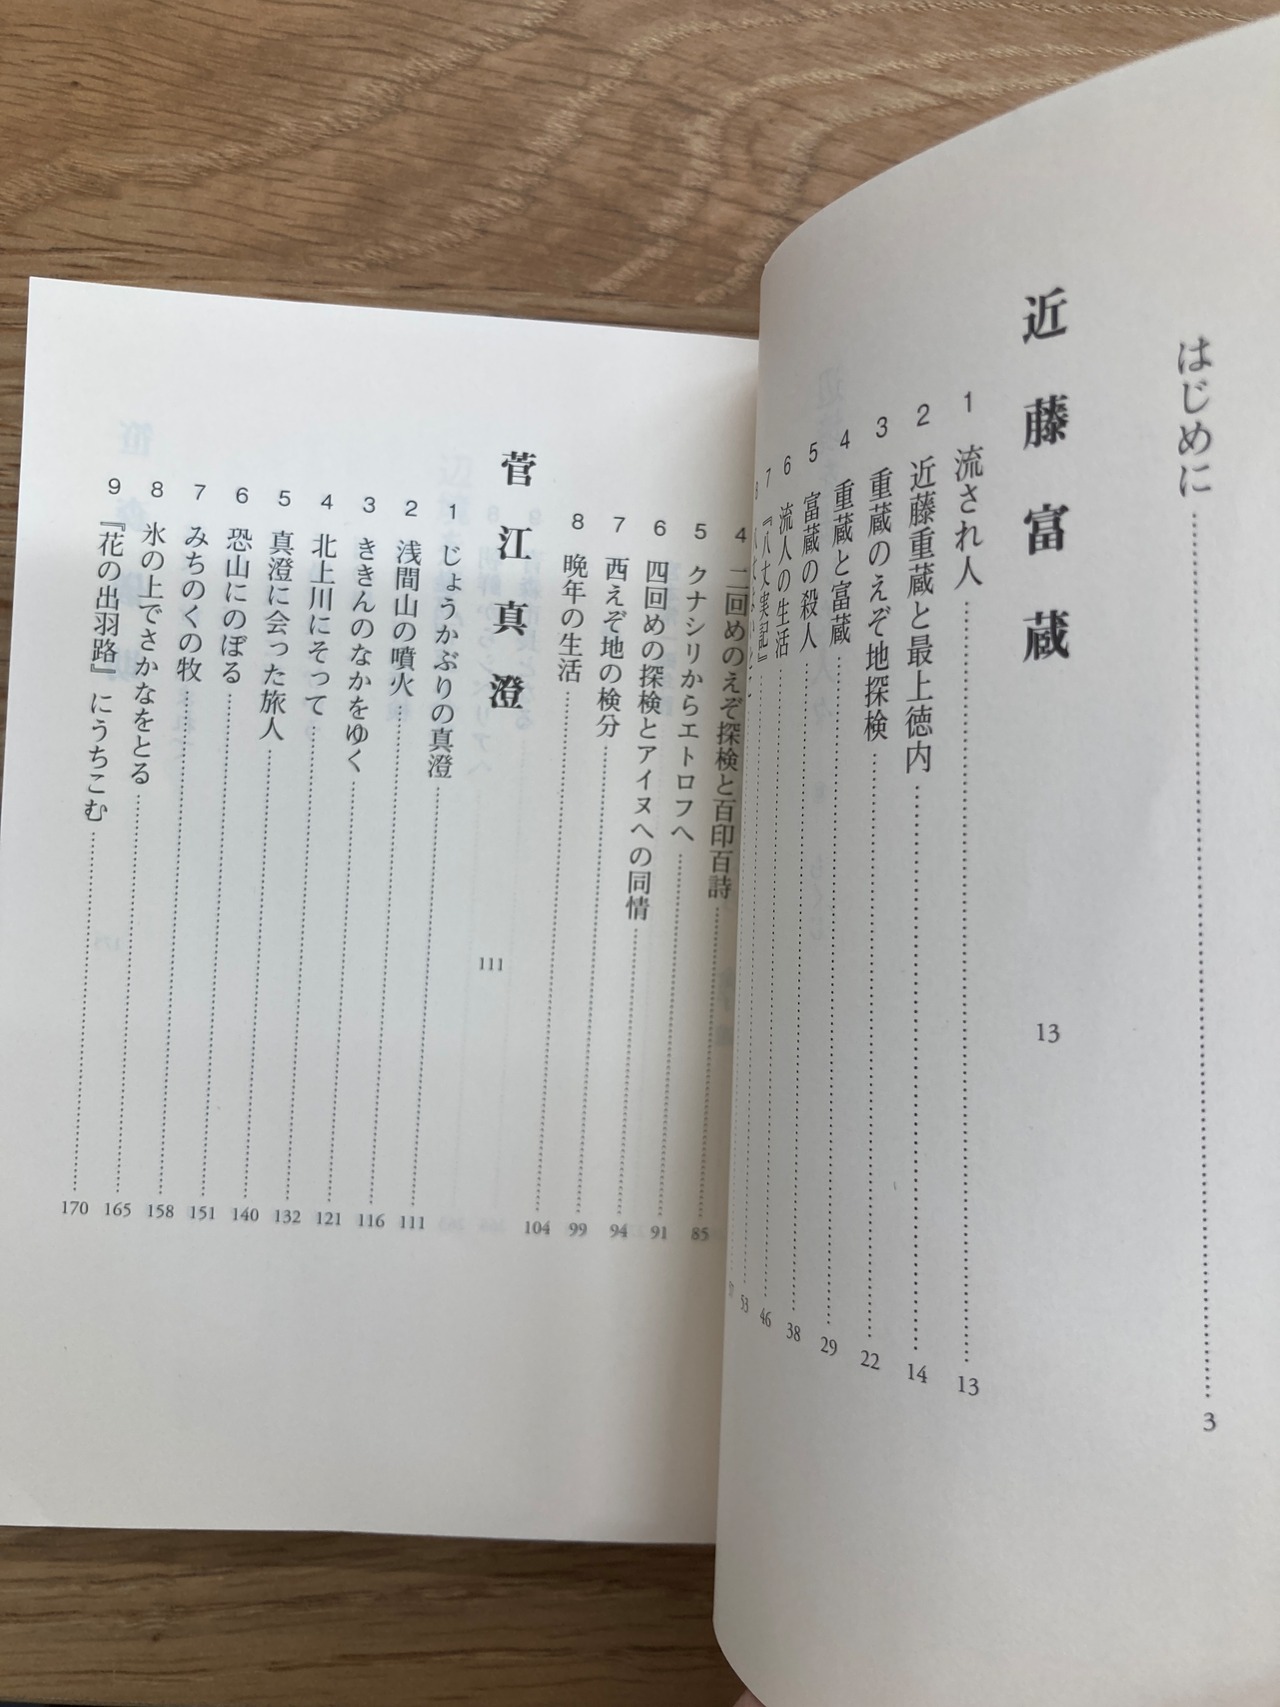 はじめに 3
近藤富蔵 13
1 流され人 13
2 近藤重蔵と最上徳内 14
3 重蔵のえぞ地探検 22
4 重蔵と富蔵 29
5 富蔵の殺人 38
6 流人の生活 46
7 『八丈実記』 53
8 57
4 二回めのえぞ探検と百印百詩 85
5 クナシリからエトロフへ 91
6 四回めの探検とアイヌへの同情 94
7 西えぞ地の検分 99
8 晩年の生活 104
菅江真澄 111
1 じょうかぶりの真澄 111
2 浅間山の噴火 116
3 ききんのなかをゆく 121
4 北上川にそって 132
5 真澄に会った旅人 140
6 恐山にのぼる 151
7 みちのくの牧 158
8 氷の上でさかなをとる 165
9 『花の出羽路』にうちこむ 170